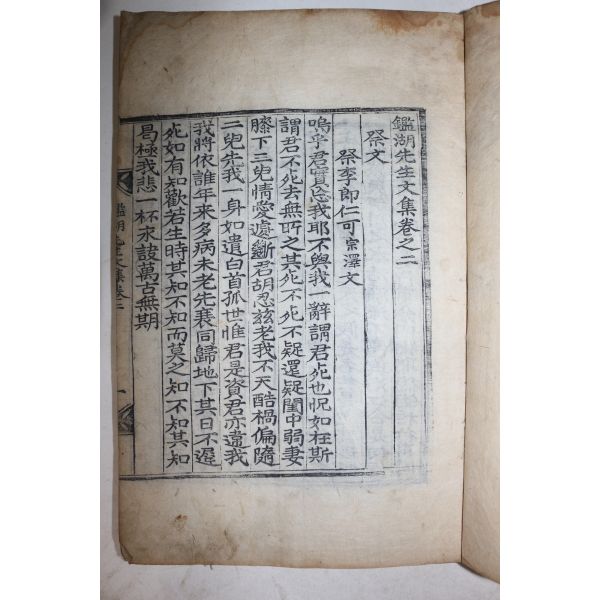 鑑湖先生文集卷之二
祭文
祭李郎仁可宗澤文
嗚乎君實忘我耶不與我一辭謂君死也怳如在斯
謂君不死去無所之其死不死不疑還疑閨中弱妻
膝下三兒情愛遽斷君胡忍玆老我不天酷禍偏隨
二兒先我一身如遺白首孤世惟君是資君亦違我
我將依誰年來多病未老先衰同歸地下其日不遲
死如有知歡若生時其知不知而莫之知不知其知
曷極我悲一杯永訣萬古無期
鑑湖先生文集卷二
一